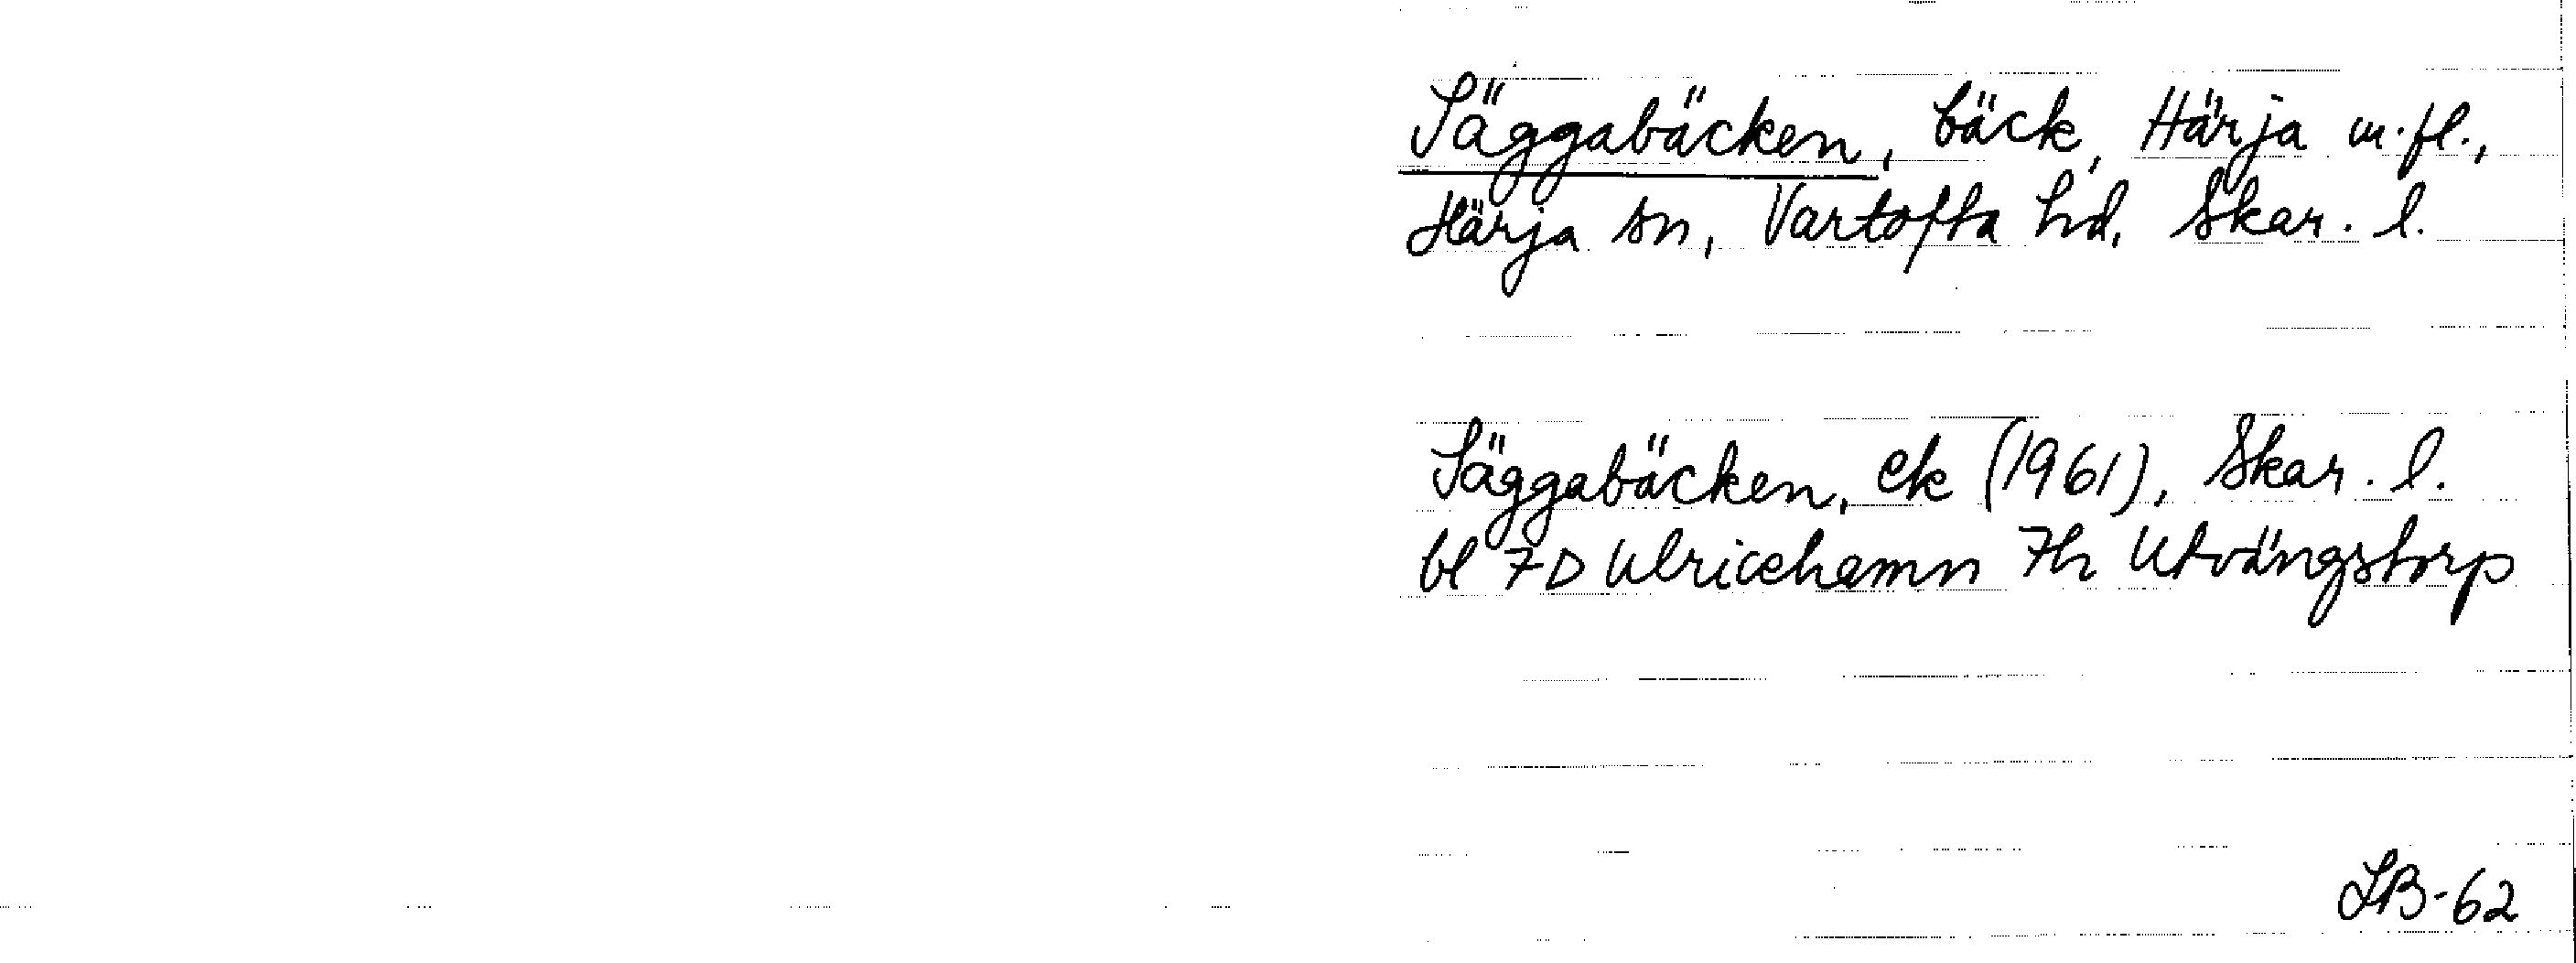 Säggabäcken, bäck, Härja m.fl.,
Härja sn, Vartofta hd, Skar. l.
Säggabäcken, ek (1961), Skar. l.
bl 7D Ulricehamn 7h Utvängstorp
LB-62